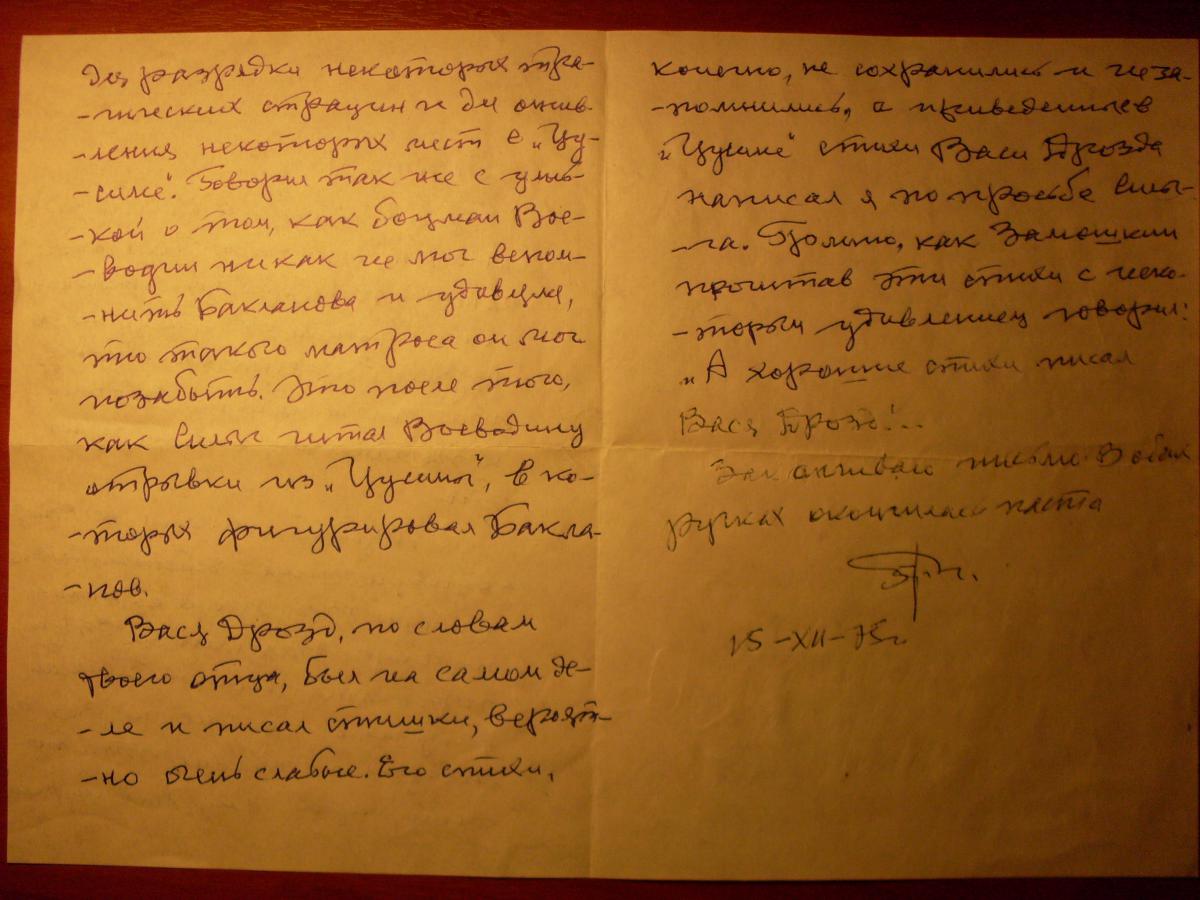 для разрядки некоторых тра-
-гических страниц и для ожив-
-ления некоторых мест в „Цу-
-симе". Говорил так же с улыб-
-кой о том, как боцман Вое-
-водин никак не мог вспом-
-нить Бакланова и удивлялся,
что такого матроса он мог
позабыть. Это после того,
как Силыч читал Воеводину
отрывки из „Цусимы", в ко-
-торых фигурировал Бакла-
-нов.
Вася Дрозд, по словам
твоего отца, был на самом де-
-ле и писал стишки, вероят-
-но очень слабые. Его стихи,
конечно, не сохранились и не за-
-помнились, а приведенные в
„Цусиме" стихи Васи Дрозда
написал я по просьбе Силы-
-ча. Помню, как Замошкин
прочитав эти стихи с неко-
-торым удивлением говорил:
„А хорошие стихи писал
Вася Дрозд!..
Заканчиваю письмо. В обеих
ручках окончилась паста
15-XII-75г.